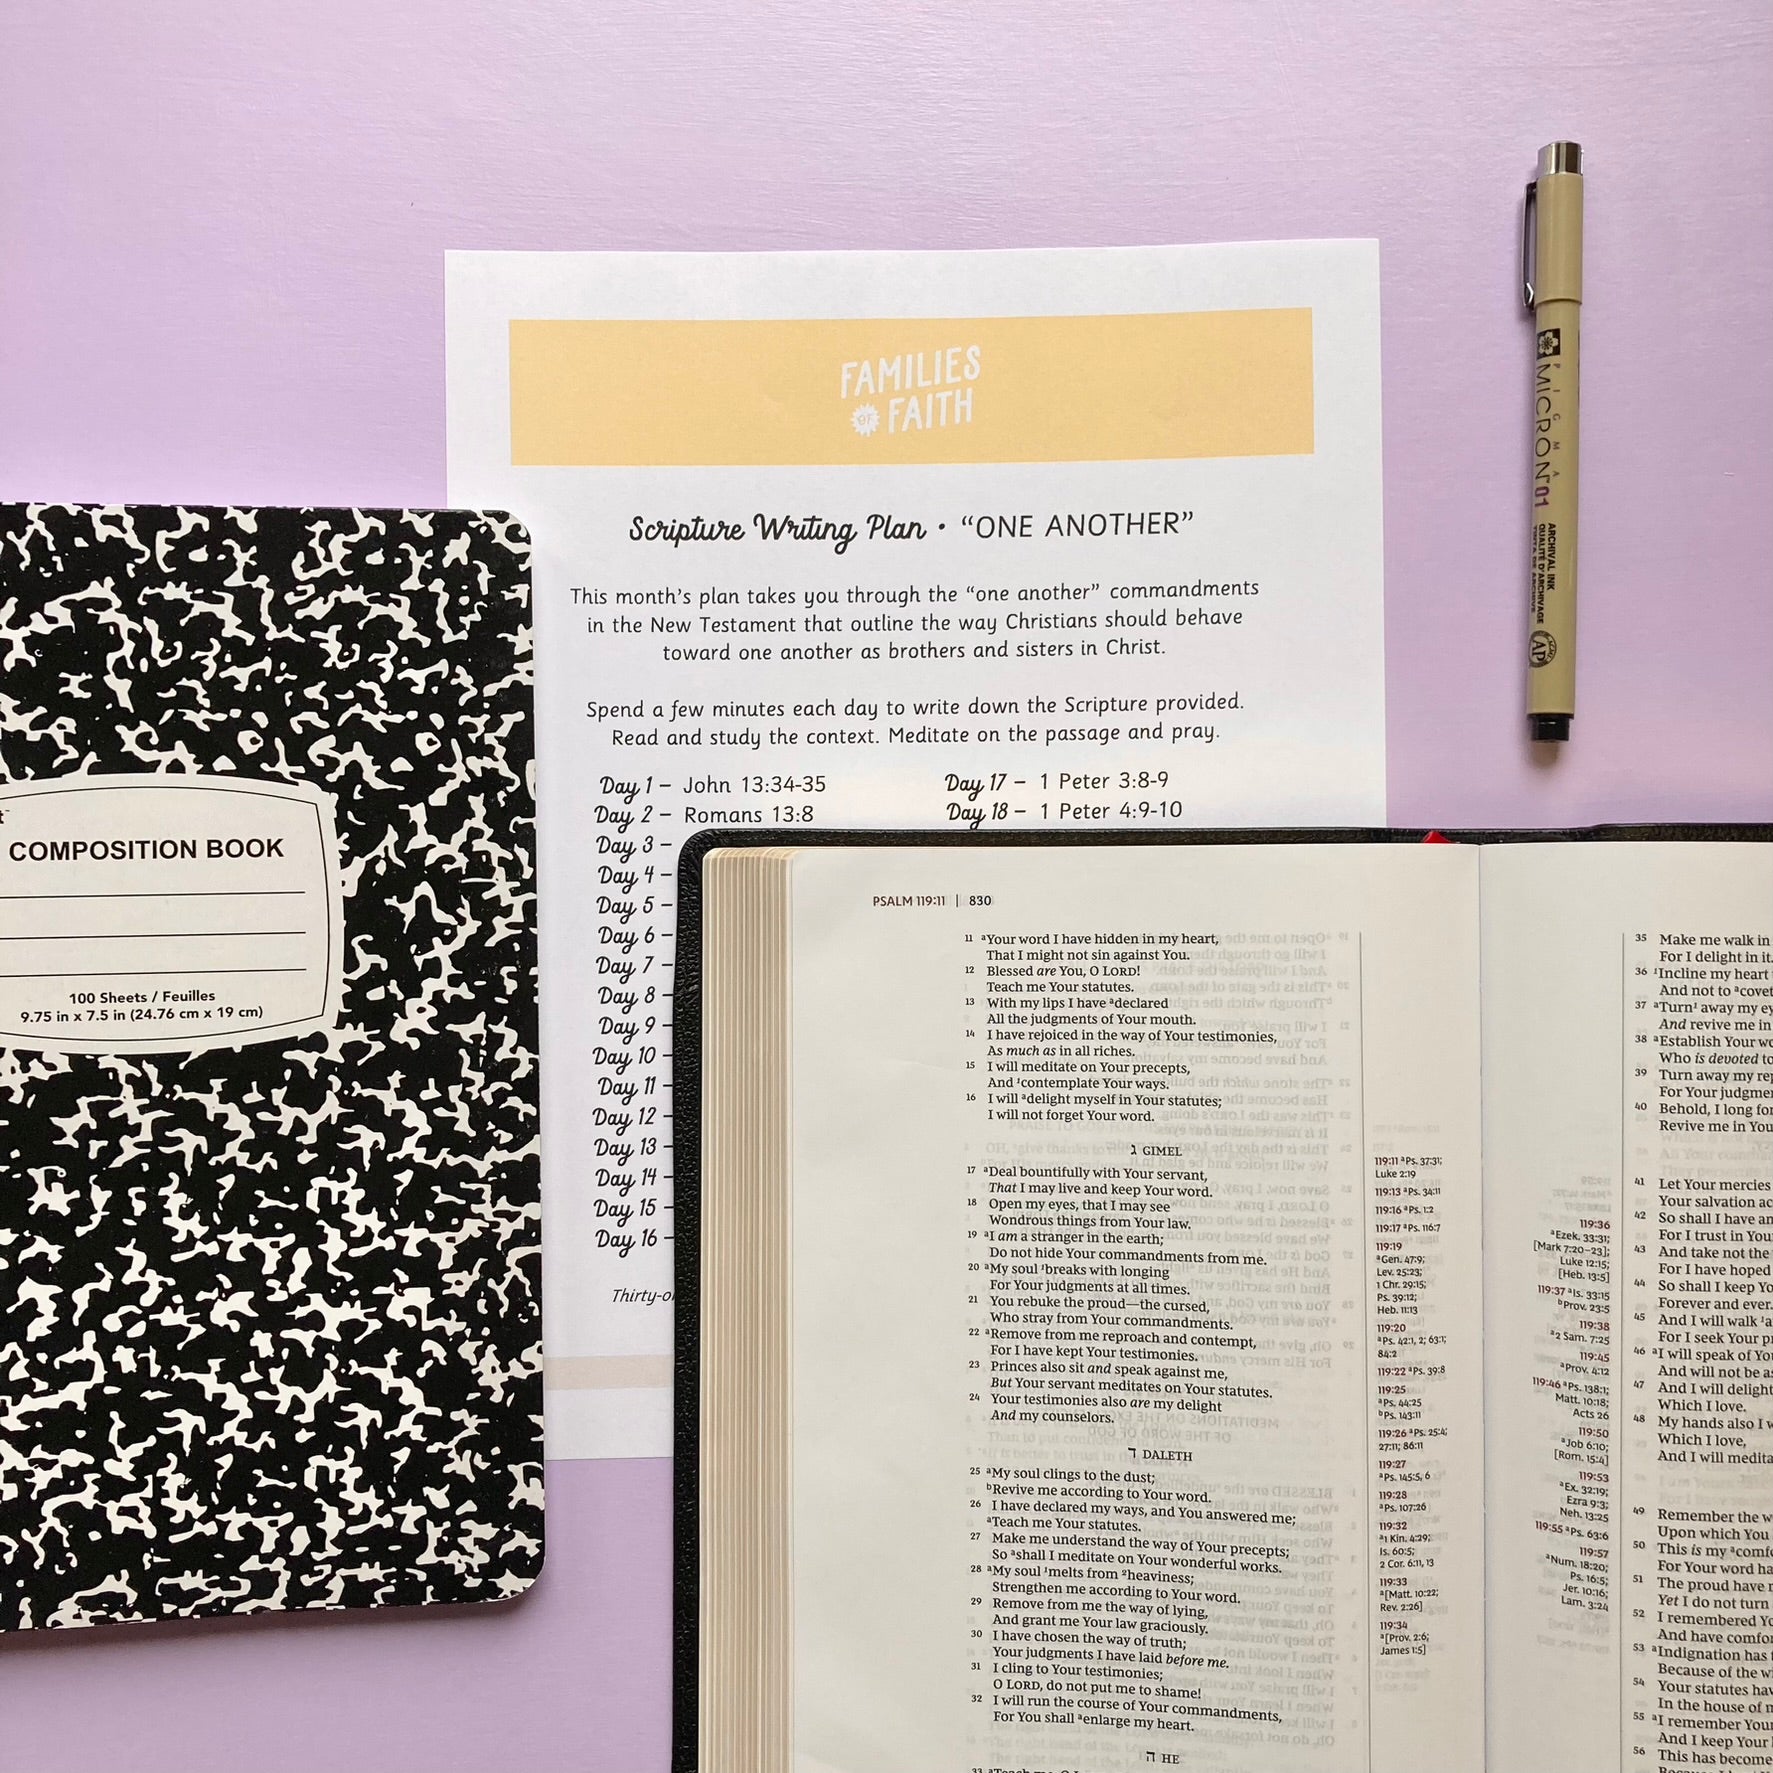 FAMILIES
OF FAITH
Scripture Writing Plan • “ONE ANOTHER”
This month’s plan takes you through the “one another” commandments
in the New Testament that outline the way Christians should behave
toward one another as brothers and sisters in Christ.
Spend a few minutes each day to write down the Scripture provided.
Read and study the context. Meditate on the passage and pray.
Day 1 – John 13:34-35
Day 2 – Romans 13:8
Day 3 –
Day 4 –
Day 5 –
Day 6 –
Day 7 –
Day 8 –
Day 9 –
Day 10 –
Day 11 –
Day 12 –
Day 13 –
Day 14 –
Day 15 –
Day 16 –
Day 17 – 1 Peter 3:8-9
Day 18 – 1 Peter 4:9-10
PIGMA
MICRON 01
ARCHIVAL INK
QUALITÉ D'ARCHIVAGE
TINTA DE ARCHIVE
AP
COMPOSITION BOOK
100 Sheets / Feuilles
9.75 in x 7.5 in (24.76 cm x 19 cm)
PSALM 119:11 | 830
11 aYour word I have hidden in my heart,
That I might not sin against You.
12 Blessed are You, O LORD!
Teach me Your statutes.
13 With my lips I have adeclared
All the judgments of Your mouth.
14 I have rejoiced in the way of Your testimonies,
As much as in all riches.
15 I will meditate on Your precepts,
And 1contemplate Your ways.
16 I will adelight myself in Your statutes;
I will not forget Your word.
ג GIMEL
17 aDeal bountifully with Your servant,
That I may live and keep Your word.
18 Open my eyes, that I may see
Wondrous things from Your law.
19 aI am a stranger in the earth;
Do not hide Your commandments from me.
20 aMy soul 1breaks with longing
For Your judgments at all times.
21 You rebuke the proud—the cursed,
Who stray from Your commandments.
22 aRemove from me reproach and contempt,
For I have kept Your testimonies.
23 Princes also sit and speak against me,
But Your servant meditates on Your statutes.
24 Your testimonies also are my delight
And my counselors.
ד DALETH
25 aMy soul clings to the dust;
bRevive me according to Your word.
26 I have declared my ways, and You answered me;
aTeach me Your statutes.
27 Make me understand the way of Your precepts;
So ashall I meditate on Your wonderful works.
28 aMy soul 1melts from 2heaviness;
Strengthen me according to Your word.
29 Remove from me the way of lying,
And grant me Your law graciously.
30 I have chosen the way of truth;
Your judgments I have laid before me.
31 I cling to Your testimonies;
O LORD, do not put me to shame!
32 I will run the course of Your commandments,
For You shall aenlarge my heart.
ה HE
119:11 aPs. 37:31;
Luke 2:19
119:13 aPs. 34:11
119:16 aPs. 1:2
119:17 aPs. 116:7
119:19
aGen. 47:9;
Lev. 25:23;
1 Chr. 29:15;
Ps. 39:12;
Heb. 11:13
119:20
aPs. 42:1, 2; 63:1;
84:2
119:22 aPs. 39:8
119:25
aPs. 44:25
bPs. 143:11
119:26 aPs. 25:4;
27:11; 86:11
119:27
aPs. 145:5, 6
119:28
aPs. 107:26
119:32
a1 Kin. 4:29;
Is. 60:5;
2 Cor. 6:11, 13
119:33
a[Matt. 10:22;
Rev. 2:26]
119:34
a[Prov. 2:6;
James 1:5]
119:36
aEzek. 33:31;
[Mark 7:20–23];
Luke 12:15;
[Heb. 13:5]
119:37 aIs. 33:15
bProv. 23:5
119:38
a2 Sam. 7:25
119:45
aProv. 4:12
119:46 aPs. 138:1;
Matt. 10:18;
Acts 26
119:50
aJob 6:10;
[Rom. 15:4]
119:53
aEx. 32:19;
Ezra 9:3;
Neh. 13:25
119:55 aPs. 63:6
119:57
aNum. 18:20;
Ps. 16:5;
Jer. 10:16;
Lam. 3:24
35 Make me walk in
For I delight in it.
36 1Incline my heart
And not to acovet
37 aTurn1 away my
And revive me in
38 aEstablish Your
Who is devoted to
39 Turn away my
For Your
40 Behold, I long for
Revive me in
41 Let Your mercies
Your salvation
42 So shall I have an
For I trust in
43 And take not the
For I have hoped
44 So shall I keep
Forever and ever.
45 And I will walk
For I seek Your
46 aI will speak of
And will not be
47 And I will delight
Which I love.
48 My hands also I
Which I love,
And I will
49 Remember the
Upon which You
50 This is my
For Your word
51 The proud have
Yet I do not turn
52 I remembered
And have
53 aIndignation has
Because of the
54 Your statutes
In the house of
55 aI remember
And I keep
56 This has become